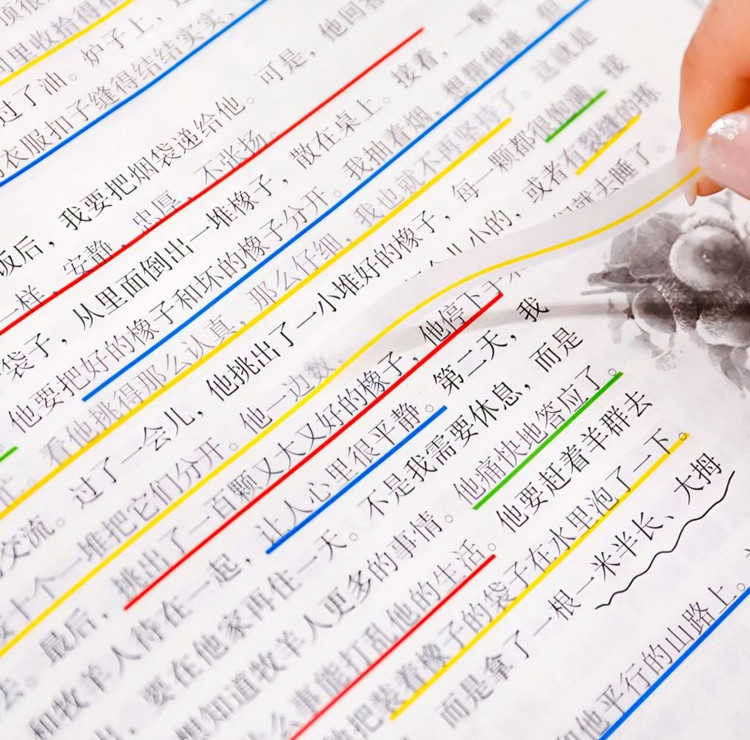 里收拾得很
过了油。炉子上，
衣服扣子缝得结结实实，
饭后，我要把烟袋递给他。可是，他回答
一样，安静，忠厚，不张扬。
袋子，从里面倒出一堆橡子，散在桌上。接着，一颗
他要把好的橡子和坏的橡子分开。我抽着烟，想帮他挑，但
忙。看他挑得那么认真，那么仔细，我也就不再坚持了。这就是
交流。过了一会儿，他挑出了一小堆好的橡子，每一颗都很饱满。接
十个一堆把它们分开。他一边数，会儿小的，或者有裂缝的拣
去。最后，挑出了一百颗又大又好的橡子，他停下手来，就去睡了。
和牧羊人待在一起，让人心里很平静。第二天，我
出，要在他家再住一天。不是我需要休息，而是
想知道牧羊人更多的事情。他痛快地答应了。
什么事能打乱他的生活。他要赶着羊群去
他把装着橡子的袋子在水里泡了一下。
而是拿了一根一米半长、大拇
和他平行的山路上。